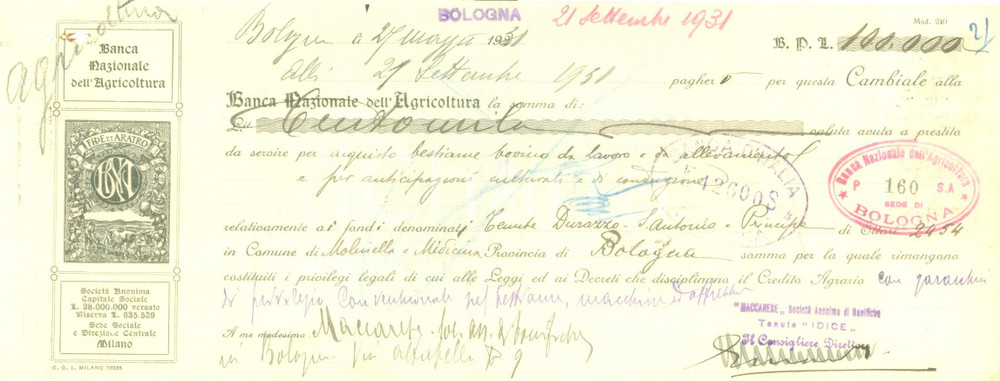 Agricoltura
Banca
Nazionale
dell'Agricoltura
FIDE ET ARATRO
BNA
Società Anonima
Capitale Sociale
L. 28.000.000 versato
Riserva L. 635.539
Sede Sociale
e Direzione Centrale
Milano
C. G. I. MILANO
BOLOGNA
21 Settembre 1931
Mod. 240
21
Bologna a 27 maggio 1931
B. P. L. 100.000
Alli 27 Settembre 1931 pagherò per questa Cambiale alla
Banca Nazionale dell'Agricoltura la somma di:
Lit. Centomila valuta avuta a prestito
da servire per acquisto bestiame bovino da lavoro e da allevamento
e per anticipazioni culturali e di conduzione
BANCA D'ITALIA
12600S
Banca Nazionale dell'Agricoltura
P 160 S.A
SEDE DI
BOLOGNA
relativamente ai fondi denominati Tenute Durazzo - S. Antonio e Principe di Ettari 2454
in Comune di Molinella e Medicina Provincia di Bologna somma per la quale rimangono
costituiti i privilegi legali di cui alle Leggi ed ai Decreti che disciplinano il Credito Agrario con garanzia
di privilegio convenzionale sul bestiame, macchine ed attrezzi
A me medesimo Maccarese - Soc. An. di Bonifiche
in Bologna Via 9
"MACCARESE" Società Anonima di Bonifiche
Tenute "IDICE"
Il Consigliere Direttore